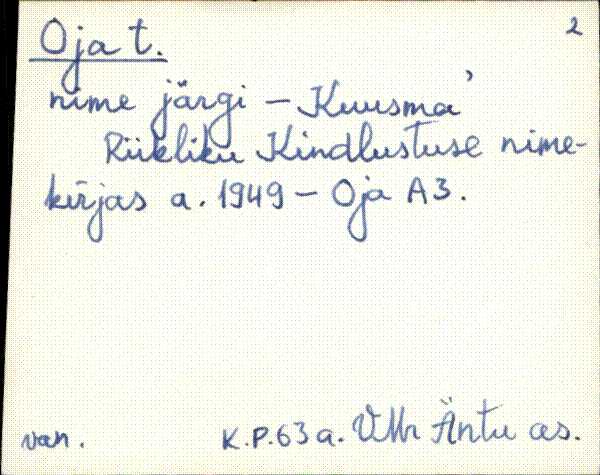 2
Oja t.
nime järgi – Kuusma'
Riikliku Kindlustuse nime-
kirjas a. 1949 – Oja A3.
van. K.P.63 a. VMr Äntu as.